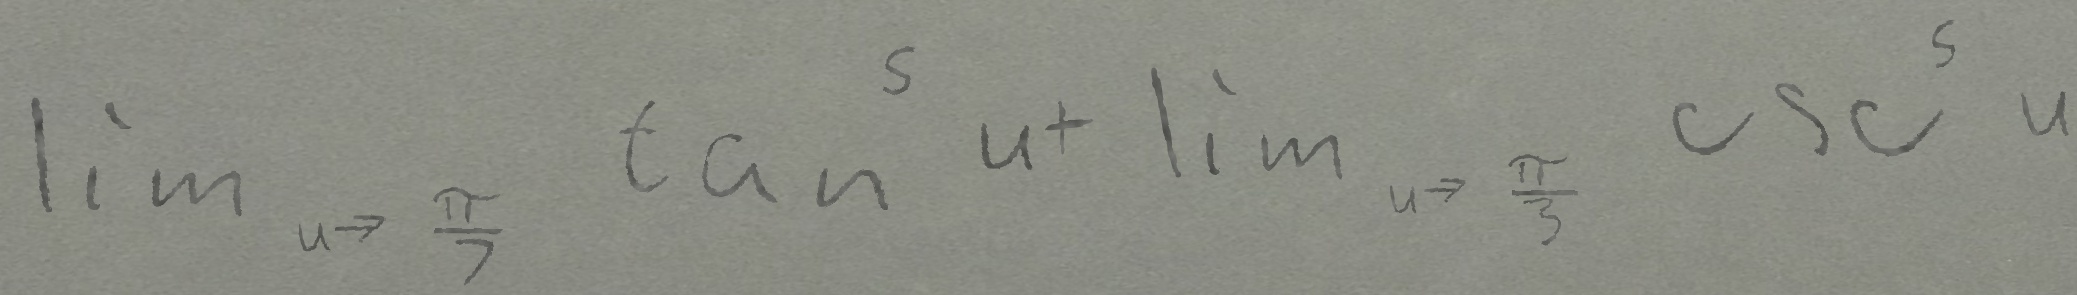 \lim_{u \to \frac{\pi}{7}} \tan^{s} u + \lim_{u \to \frac{\pi}{3}} \csc^{s} u